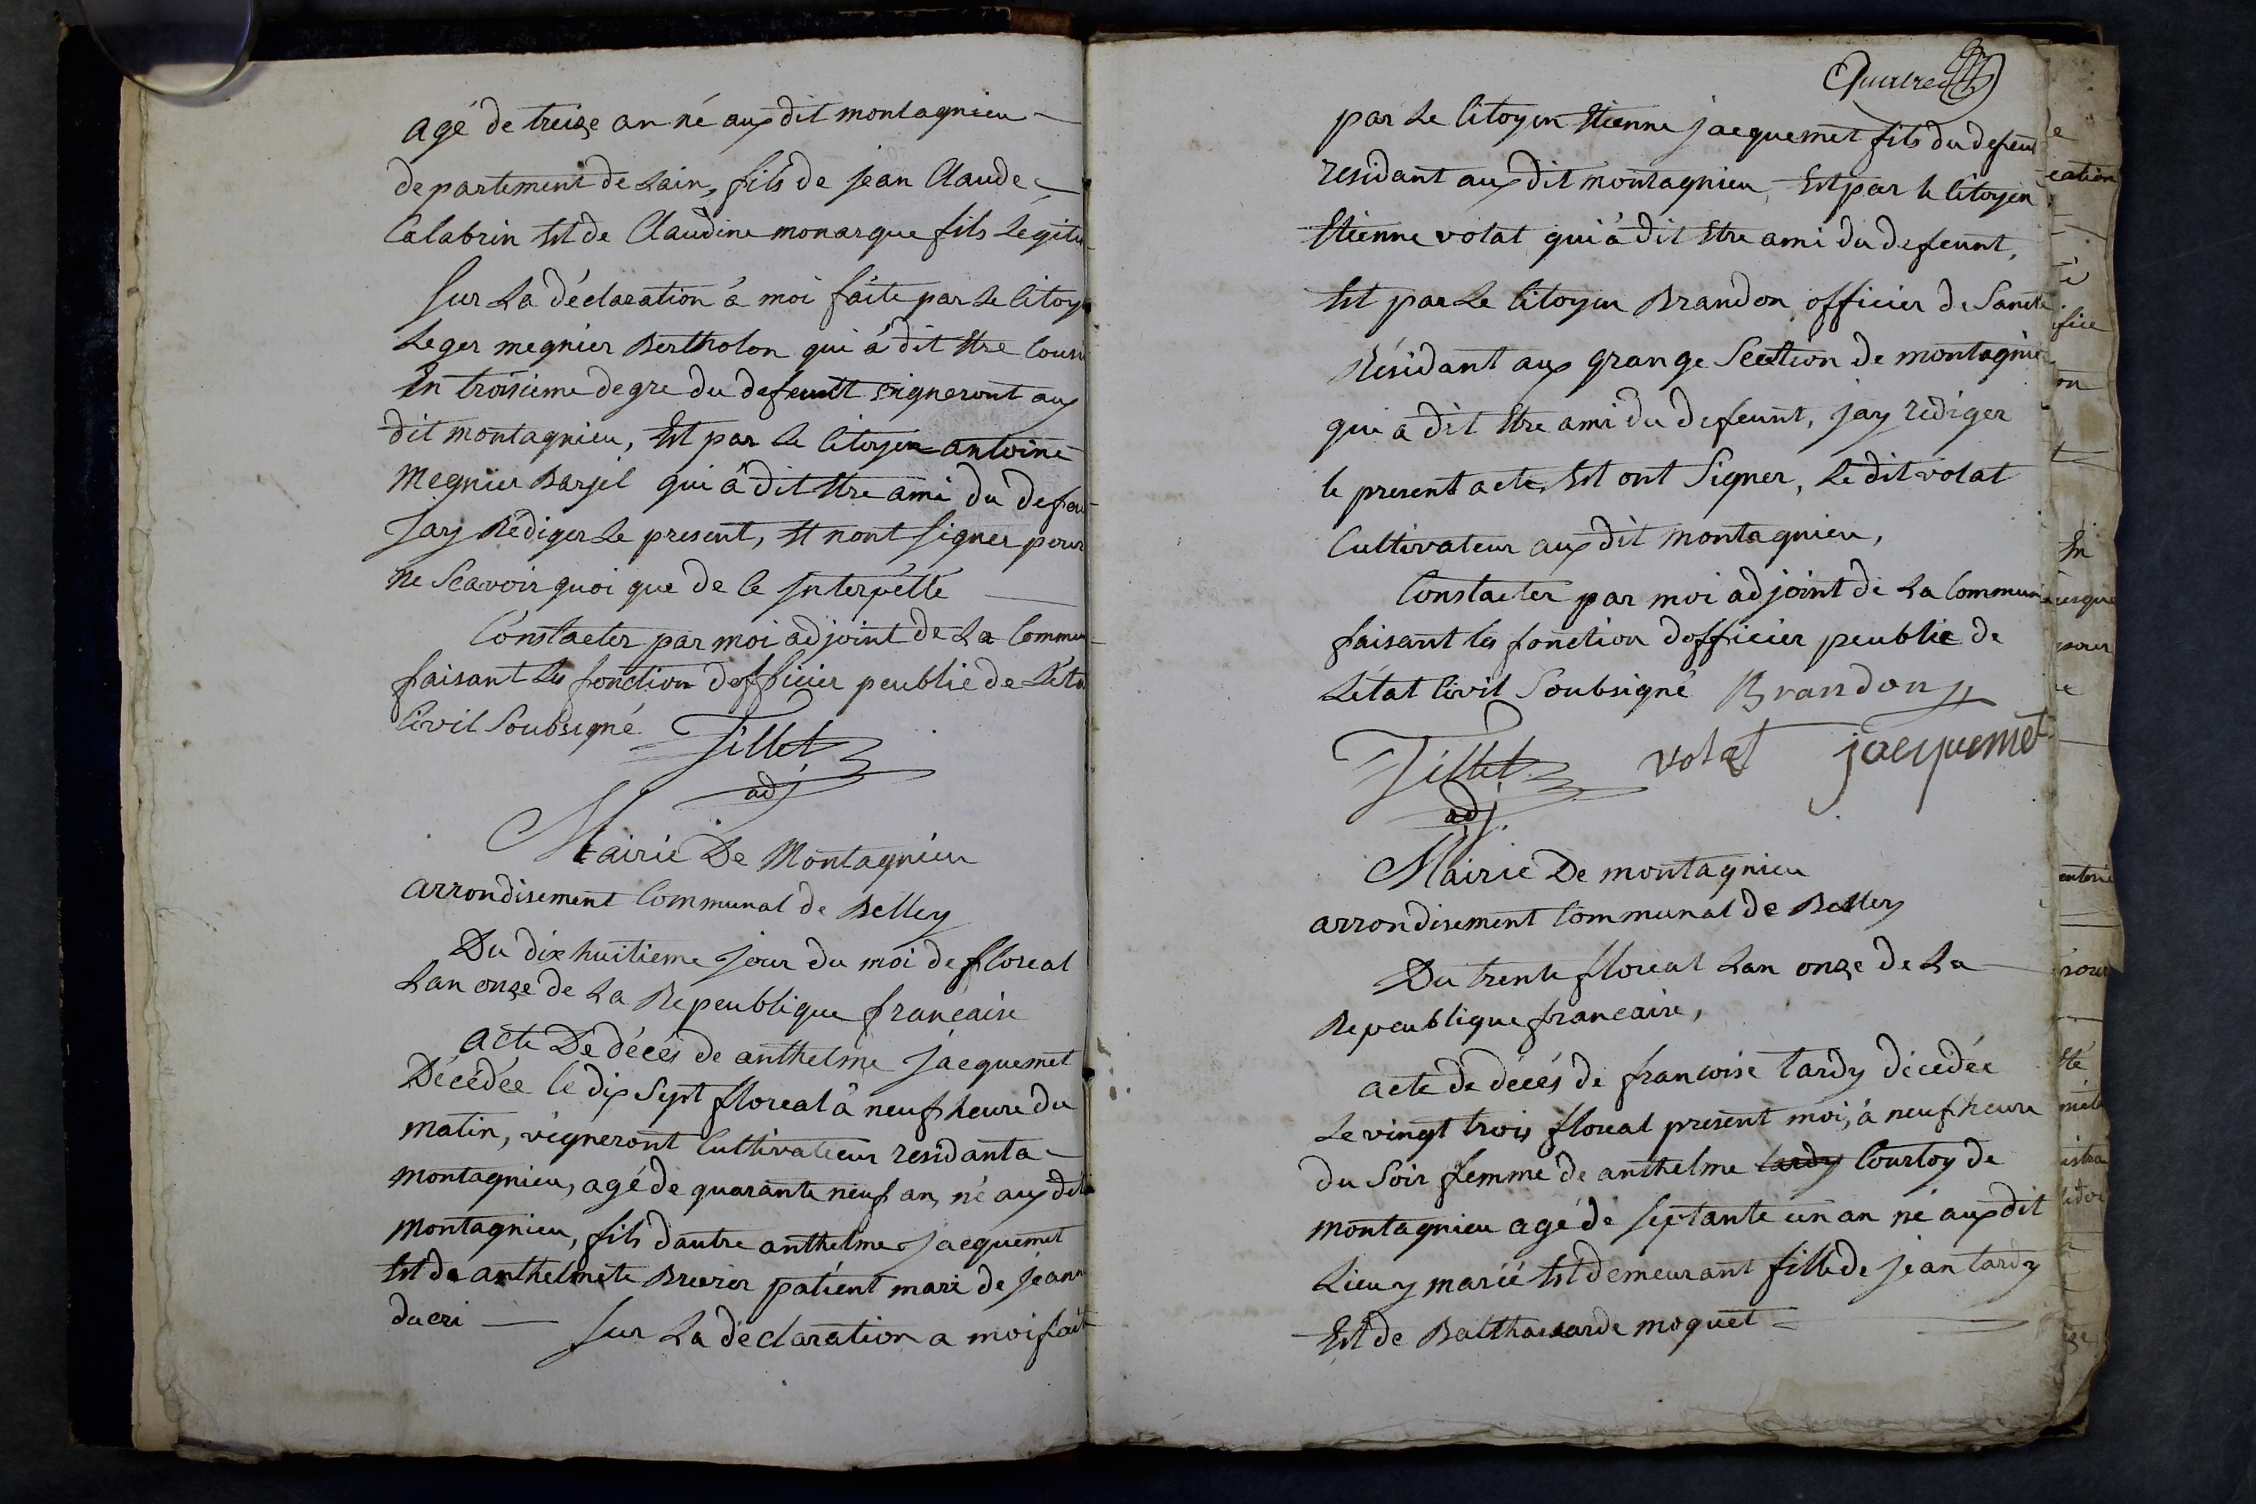 agé de treize an né aux dit montagnieu
departement de Lain, fils de jean Claude
Calabrin Est de Claudine monarque fils Légiti
Sur La déclaration á moi faite par Le Citoy
Leger megnier Bertholon qui á dit Etre Cousi
En troisieme degre du defeunt vigneront aux
dit montagnieu, Est par Le Citoyen antoine
Megnier Barjel qui á dit Etre ami du defeu
Jay Rédiger Le present, Et nont signer pour
ne Scavoir quoi que de Ce Interpellé
Constacter par moi adjoint de La Commun
faisant Les fonction dofficier peublic de Léta
Civil Soubsigné Tillet
adj
Mairie De Montagnieu
arrondisement Communal de Belley
Du dix huitieme jour du moi de floreal
Lan onze de La Repeublique francaise
acte De décés de anthelme jacquemet
Décédée le dix Sept floreal á neuf heure du
matin, vigneront Cultivateur residant a
montagnieu, agé de quarante neuf an, né aux dit
montagnieu, fils dautre anthelme jacquemet
Est de anthelmete patient mari de jeann
ducri Sur La déclaration a moi fait
par Le Citoyen Etienne jacquemet fils du defeun
residant aux dit montagnieu, Est par le Citoyen
Etienne volat qui á dit Etre ami du defeunt,
Est par Le Citoyen Brandon officier de Santé
Résidant aux grange Section de montagnieu
qui a dit Etre ami du defeunt, jay rediger
le present acte, Est ont Signer, Le dit volat
Cultivateur aux dit montagnieu,
Constacter par moi adjoint de La Commun
faisant les fonction dofficier peublic de
Létat Civil Soubsigné Brandon
Tillet volat jacquemet
adj
Mairie De montagnieu
arrondisement Communal de Belley
Du trente floreal Lan onze de La
Repeublique francaise,
acte de décés de francoise tardy décédée
Le vingt trois floreal present moi, á neuf heure
du Soir femme de anthelme tardy Courtoy de
montagnieu agé de septante un an né aux dit
Lieu y marié Est demeurant fille de jean tardy
Est de Balthasarde moquet